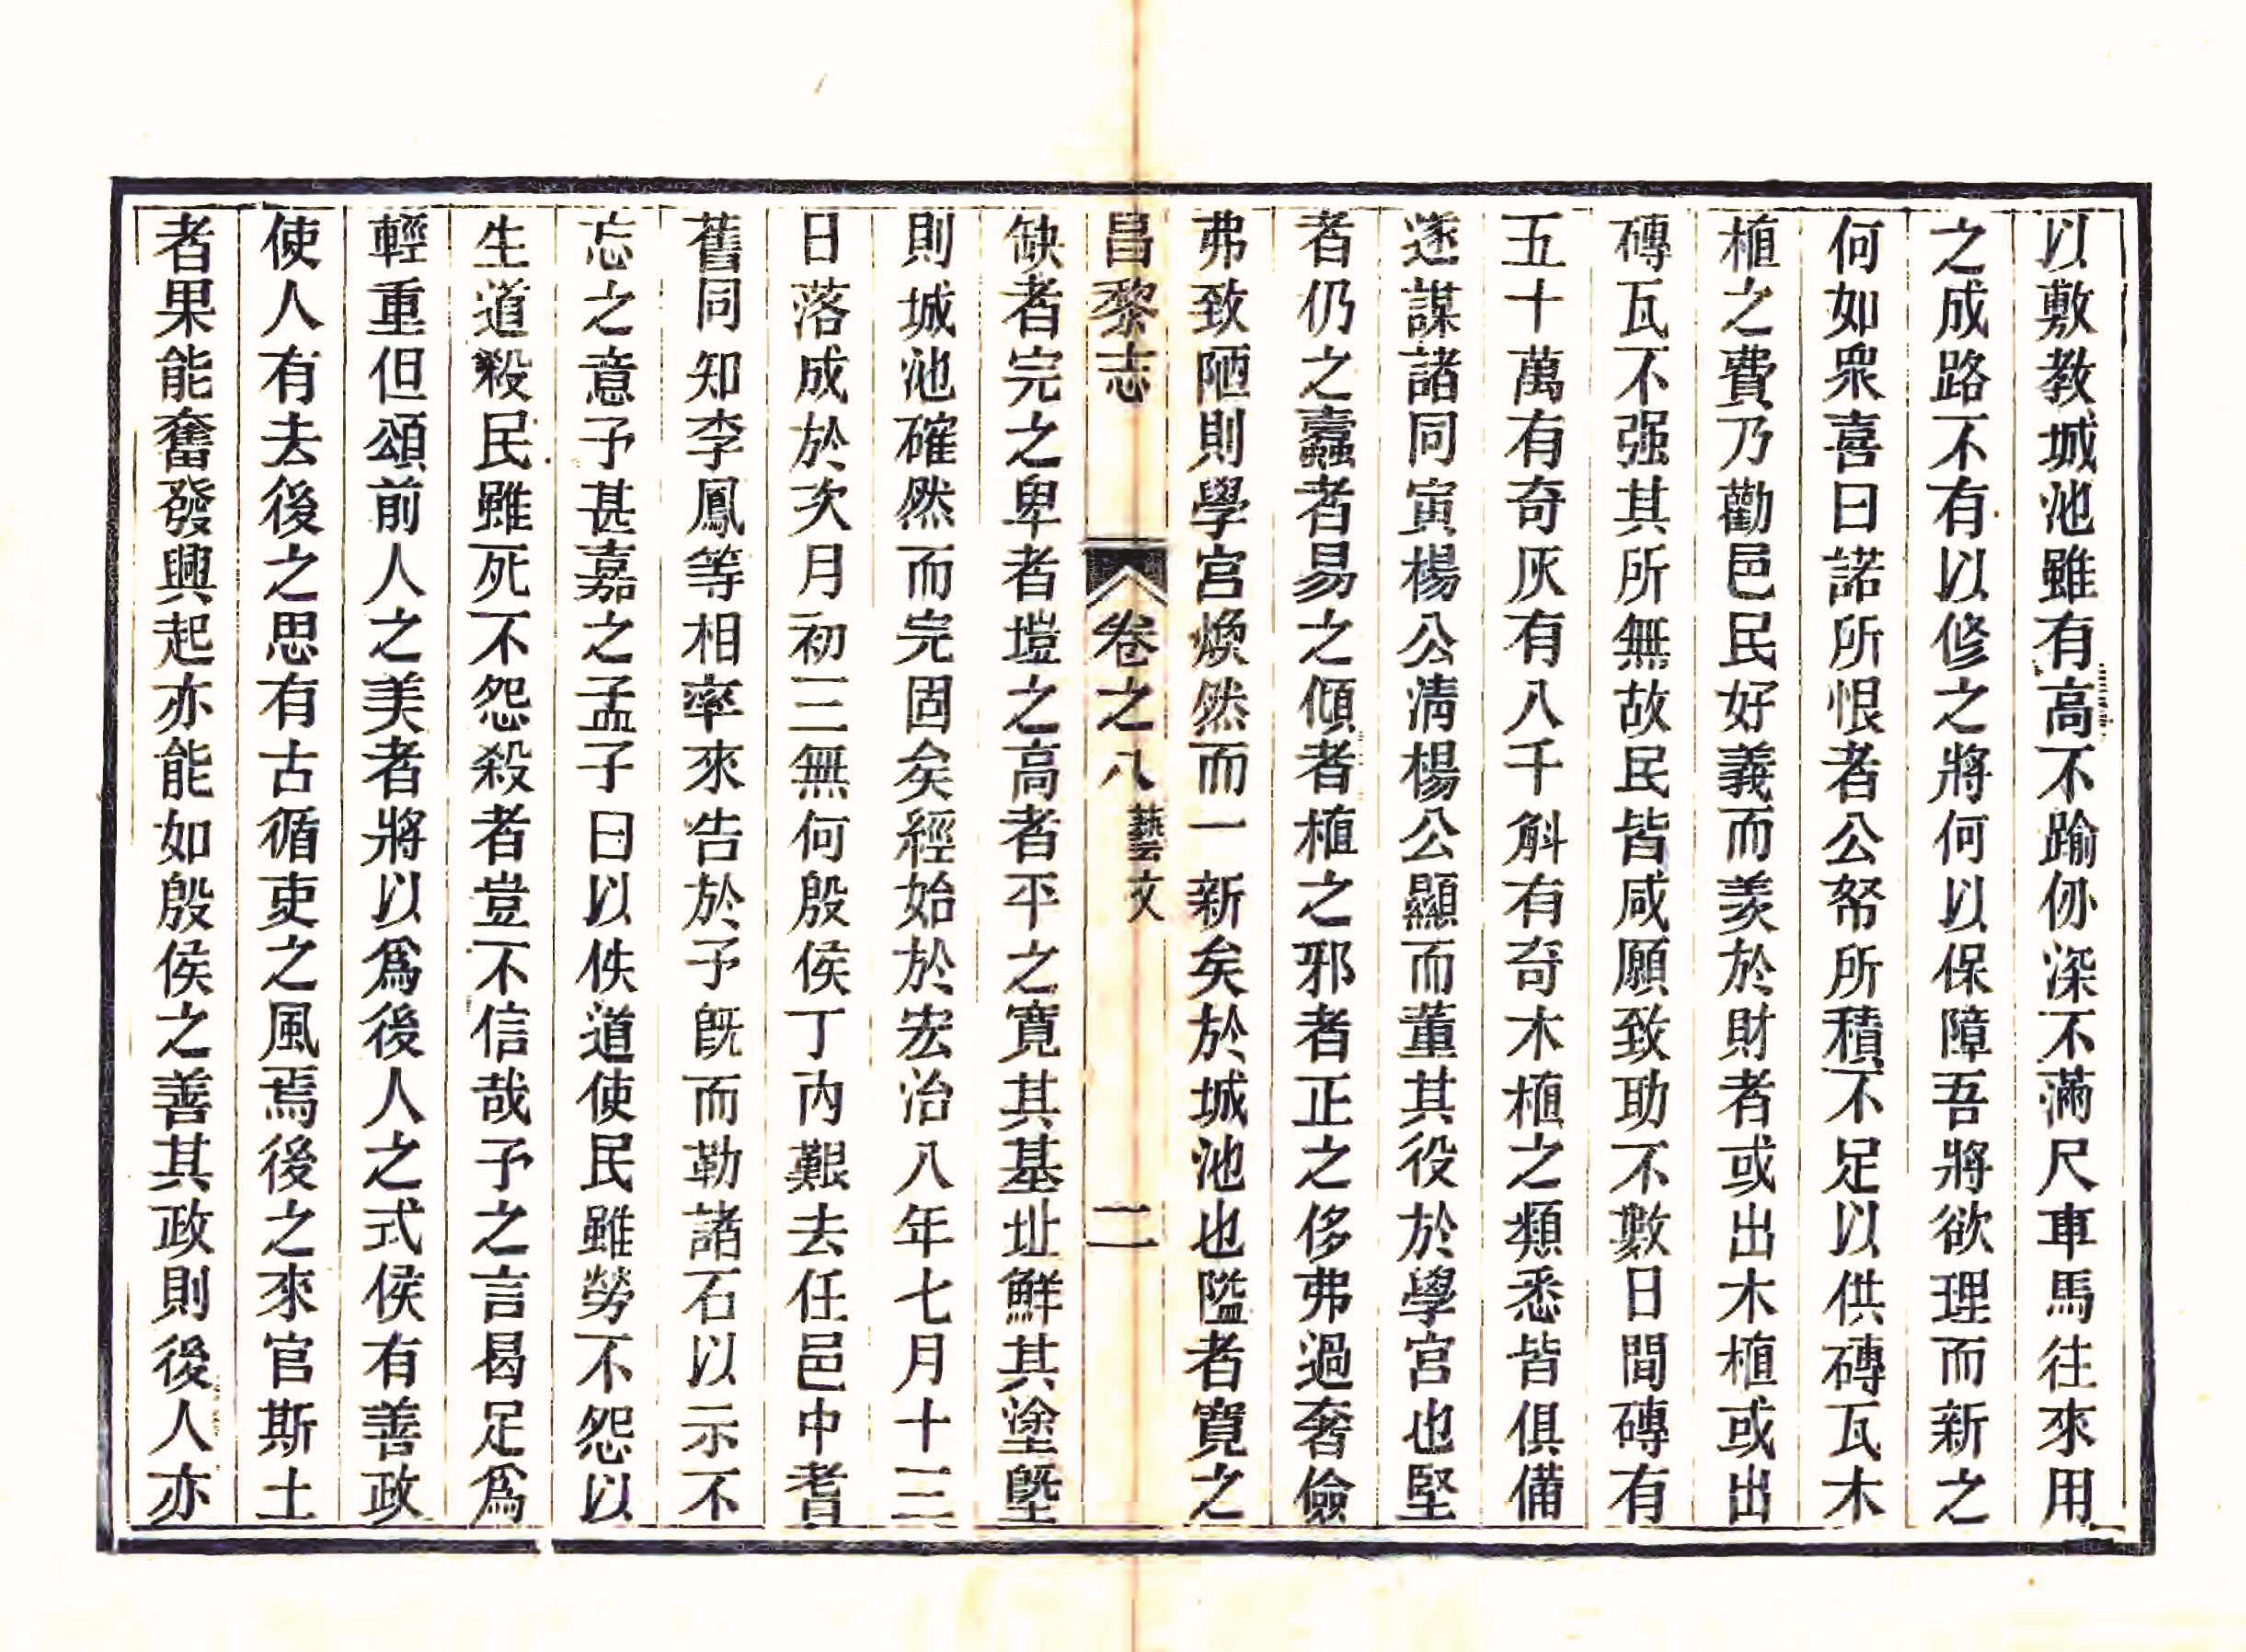 以敷教城池雖有高不踰仞深不滿尺車馬往來用
之成路不有以修之將何以保障吾將欲理而新之
何如衆喜曰諾所恨者公帑所積不足以供磚瓦木
植之費乃勸邑民好義而羨於財者或出木植或出
磚瓦不强其所無故民皆咸願致助不數日間磚有
五十萬有奇灰有八千斛有奇木植之類悉皆俱備
遂謀諸同寅楊公清楊公顯而董其役於學宮也堅
者仍之蠹者易之傾者植之邪者正之侈弗過奢儉
弗致陋則學宮煥然而一新矣於城池也隘者寬之
昌黎志 卷之八 藝文 二
缺者完之卑者塏之高者平之寬其基址鮮其塗墍
則城池確然而完固矣經始於宏治八年七月十三
日落成於次月初三無何殷侯丁內艱去任邑中耆
舊同知李鳳等相率來告於予既而勒諸石以示不
忘之意予甚嘉之孟子曰以佚道使民雖勞不怨以
生道殺民雖死不怨殺者豈不信哉予之言曷足爲
輕重但頌前人之美者將以爲後人之式侯有善政
使人有去後之思有古循吏之風焉後之來官斯土
者果能奮發興起亦能如殷侯之善其政則後人亦